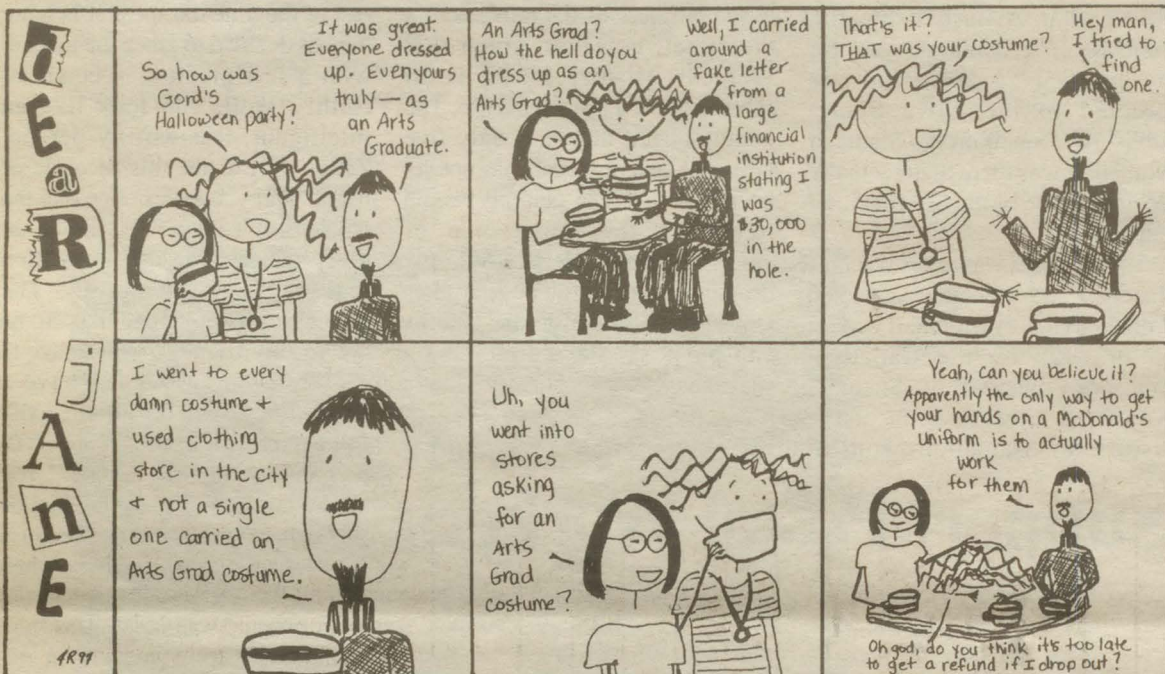 dEaR
jANE
So how was
Gord's
Halloween party?
It was great.
Everyone dressed
up. Even yours
truly— as
an Arts
Graduate.
An Arts Grad?
How the hell do you
dress up as an
Arts Grad?
Well, I carried
around a
fake letter
from a
large
financial
institution
stating I
was
$30,000
in the
hole.
That's it?
THAT was your costume?
Hey man,
I tried to
find
one.
I went to every
damn costume +
used clothing
store in the city
+ not a single
one carried an
Arts Grad costume.
Uh, you
went into
stores
asking
for an
Arts
Grad
costume?
Yeah, can you believe it?
Apparently the only way to get
your hands on a McDonald's
uniform is to actually
work
for them
Oh god, do you think it's too late
to get a refund if I drop out?